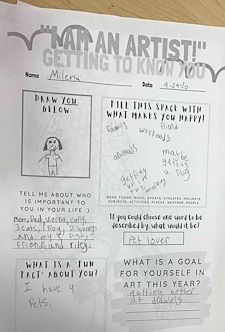 "I AM AN ARTIST!"
GETTING TO KNOW YOU
Name Milena
Date 9-29-20
DRAW YOU
BELOW:
FILL THIS SPACE WITH
WHAT MAKES YOU HAPPY!
family
friend
weekends
animals
maybe
getting
a Dog
getting
up
(IDEAS: FOODS, MUSIC, SPORTS, ATHLETES, HOLIDAYS,
SUBJECTS, ACTIVITIES, PLACES, WEATHER, PEOPLE)
TELL ME ABOUT WHO
IS IMPORTANT TO
YOU IN YOUR LIFE :)
Mom, Dad,
3 cats, Dog,
and my
Friend and riley.
If you could choose one word to be
described by what would it be!
Pet lover
WHAT IS A 'FUN
FACT' ABOUT YOU?
I have 9
Pets.
WHAT IS A GOAL
FOR YOURSELF IN
ART THIS YEAR?
getting better
at drawing